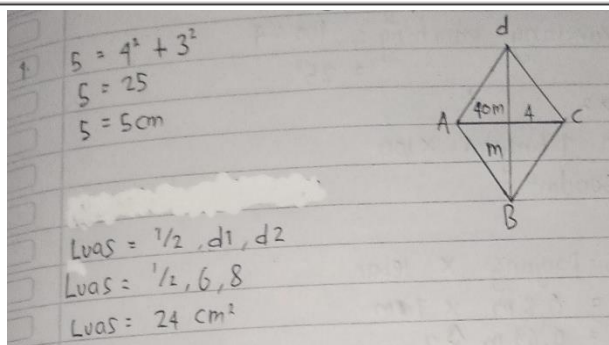 1. 5 = 4² + 3²
5 = 25
5 = 5cm
Luas = 1/2, d1, d2
Luas = 1/2, 6, 8
Luas = 24 cm²
d
A 40m 4 C
m
B